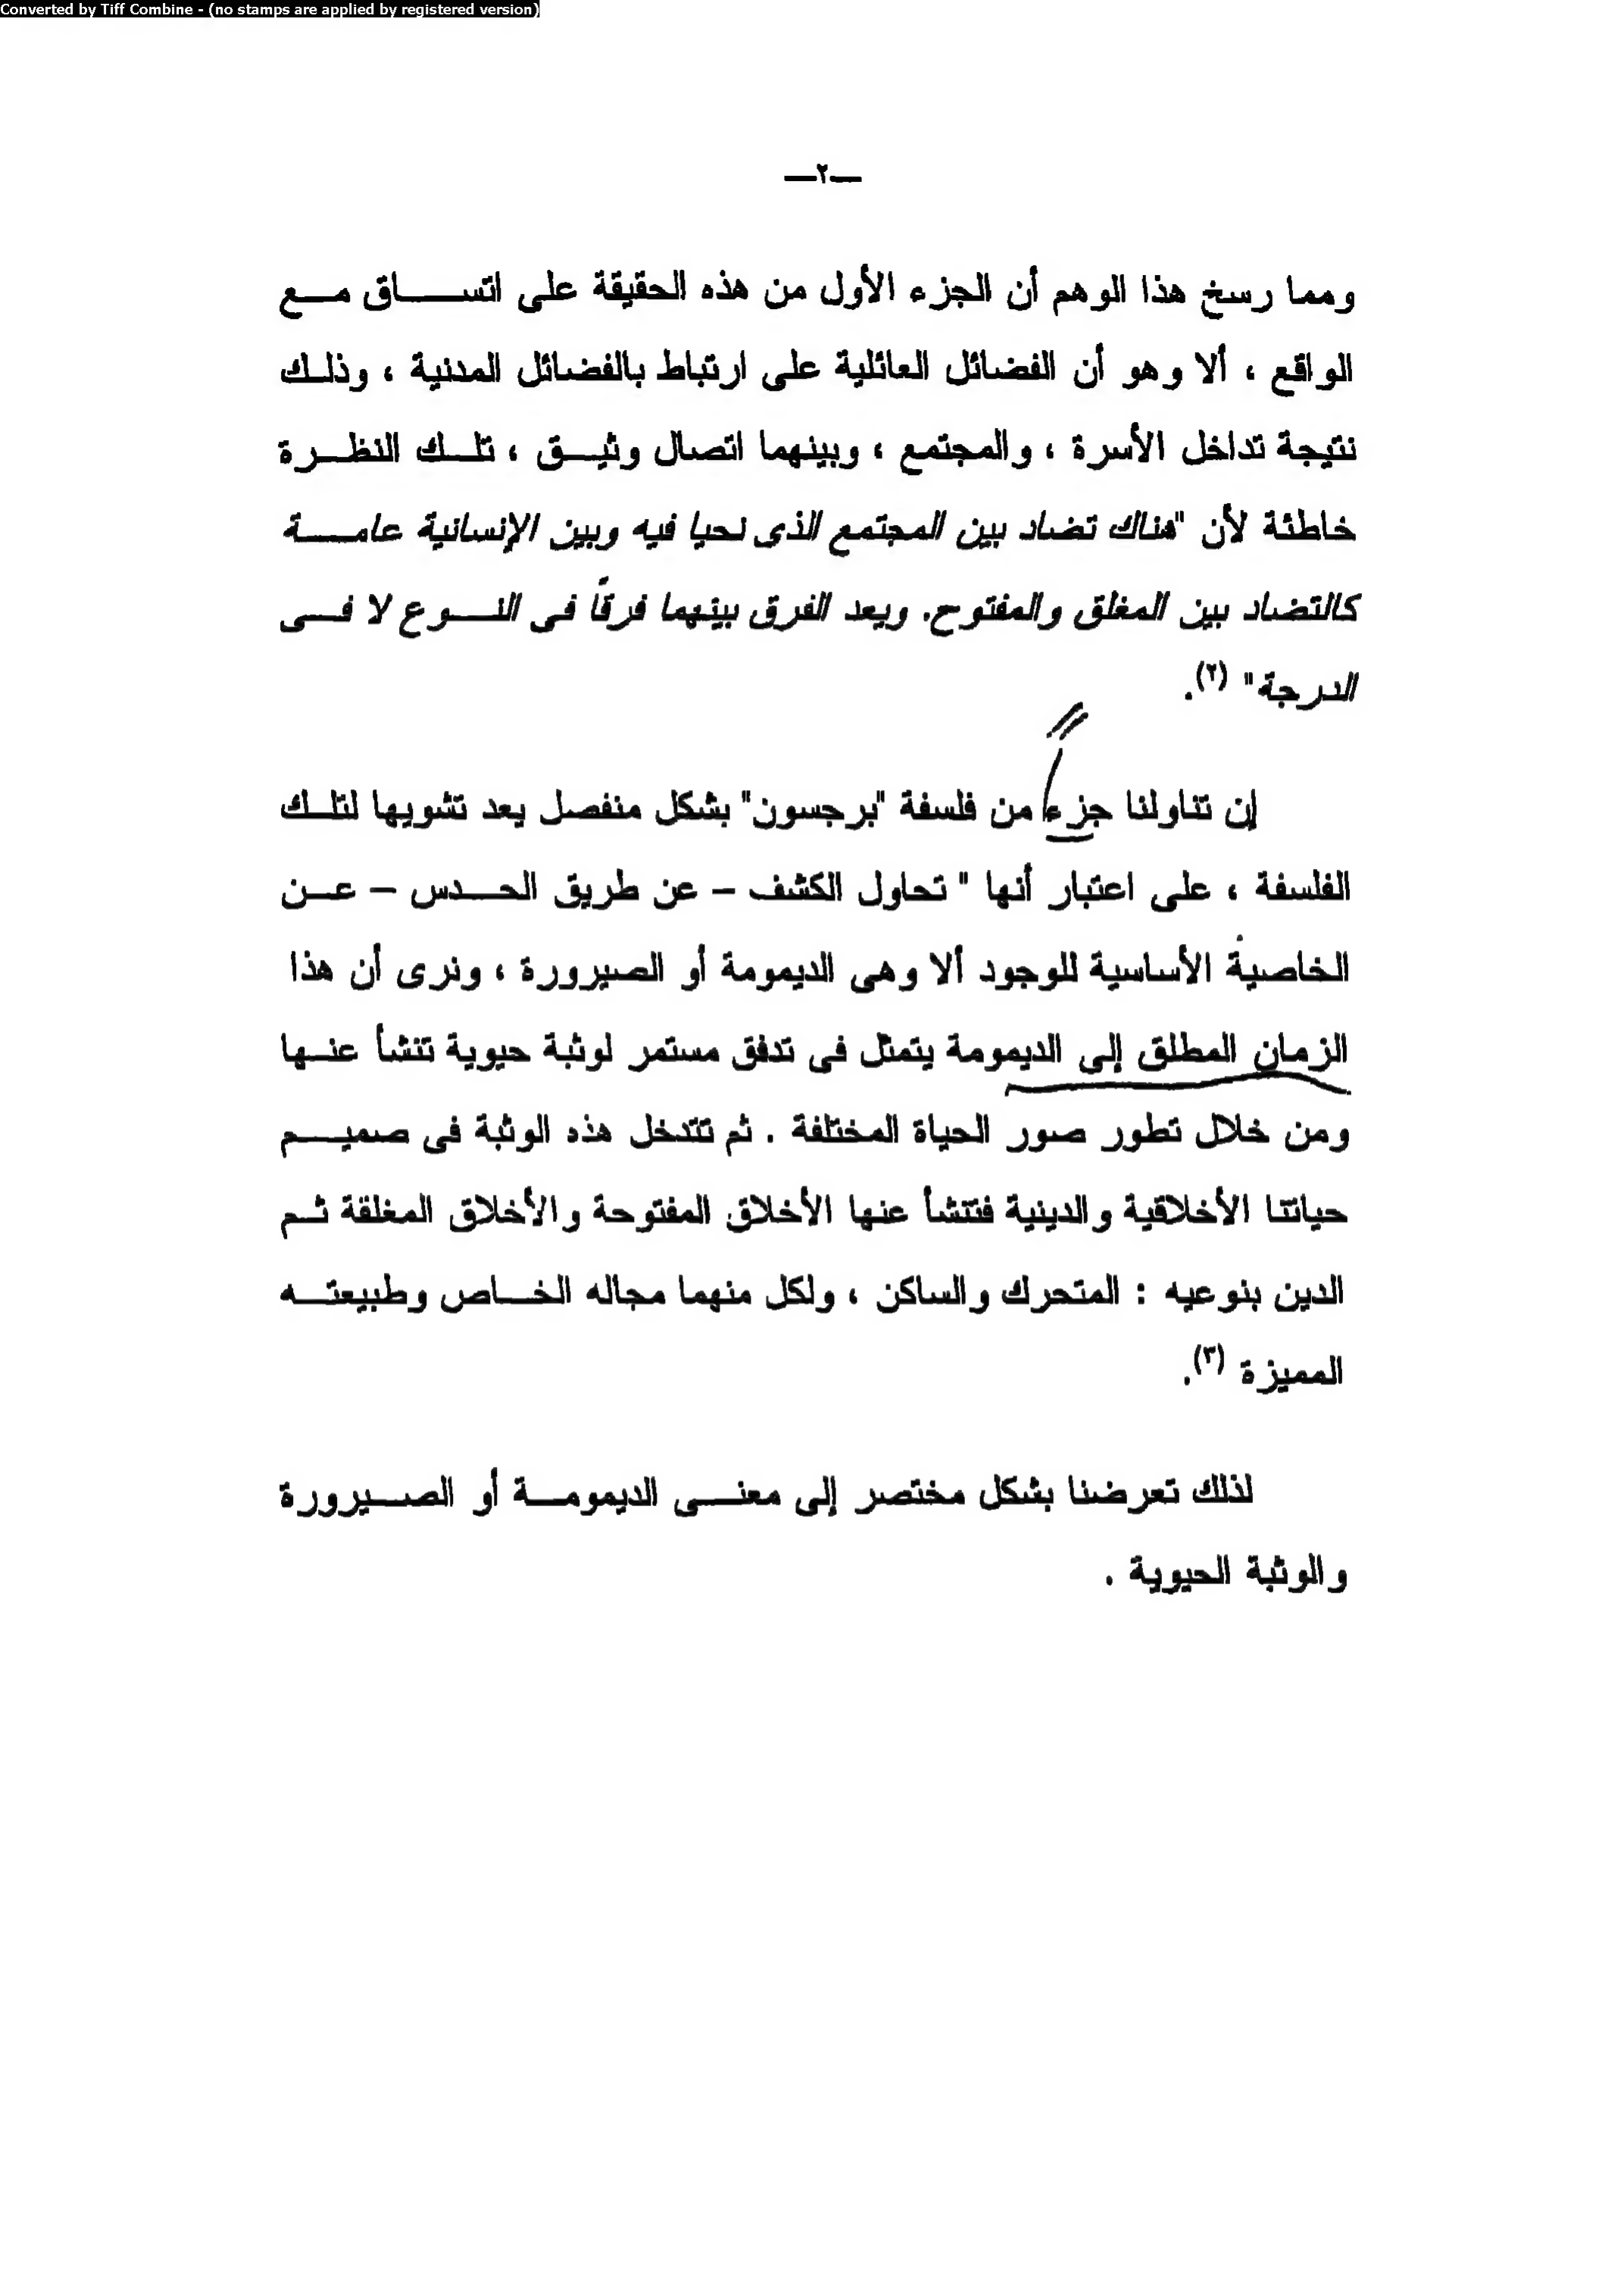 Converted by Tiff Combine - (no stamps are applied by registered version)
—٢—
ومما رسخ هذا الوهم أن الجزء الأول من هذه الحقيقة على اتساق مع
الواقع ، ألا وهو أن الفضائل العائلية على ارتباط بالفضائل المدنية ، وذلك
نتيجة تداخل الأسرة ، والمجتمع ، وبينهما اتصال وثيق ، تلك النظرة
خاطئة لأن "هناك تضاد بين المجتمع الذى نحيا فيه وبين الإنسانية عامة
كالتضاد بين المغلق والمفتوح. ويعد الفرق بينهما فرقاً فى النوع لا فى
الدرجة" (٢).
إن تناولنا جزء من فلسفة "برجسون" بشكل منفصل يعد تشويها لتلك
الفلسفة ، على اعتبار أنها " تحاول الكشف – عن طريق الحدس – عن
الخاصية الأساسية للوجود ألا وهى الديمومة أو الصيرورة ، ونرى أن هذا
الزمان المطلق إلى الديمومة يتمثل فى تدفق مستمر لوثبة حيوية تنشأ عنها
ومن خلال تطور صور الحياة المختلفة . ثم تتدخل هذه الوثبة فى صميم
حياتنا الأخلاقية والدينية فتنشأ عنها الأخلاق المفتوحة والأخلاق المغلقة ثم
الدين بنوعيه : المتحرك والساكن ، ولكل منهما مجاله الخاص وطبيعته
المميزة (٣).
لذلك تعرضنا بشكل مختصر إلى معنى الديمومة أو الصيرورة
والوثبة الحيوية .